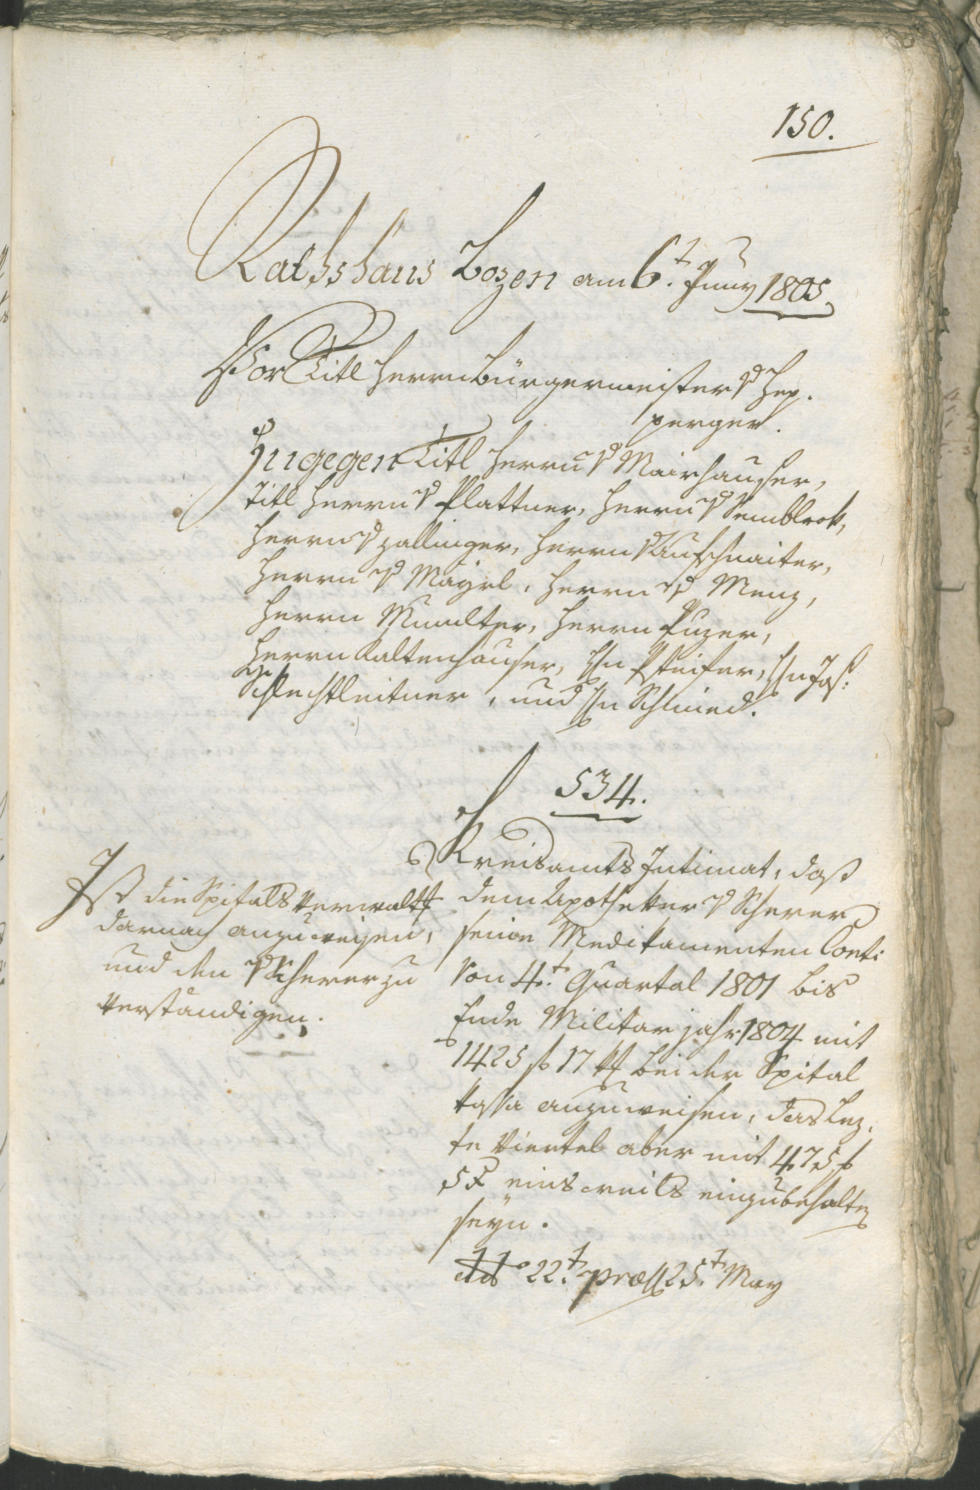 150.
Rathshaus Bozen am 6t. Juny 1805
Vor Titl Herrn Bürgermeister v Hep¬
perger.
Zugegen Titl Herrn v Mairhauser,
Titl Herrn v Plattner, Herrn v Remblok,
Herrn v Zallinger, Herrn v Aufschnaiter,
Herrn v Mayrl, Herrn v Menz,
Herrn Mumelter, Herrn Puzer,
Herrn Kaltenhauser, Hn Pfeifer, Hn Jos:
Schlechtleitner, und Hn Schmied.
534.
Kreisamts Intimat, daß
dem Apotheker v Scherer
seine Medikamenten Conti
von 4t. Quartal 1801 bis
Ende Militarjahr 1804 mit
1425 f 17 x bei der Spital
kassa anzuweisen, das lez¬
te Viertel aber mit 475 f
5 x einsweils einzubehalten
seyn.
ddo 22t. præs 25t. May
Ist die Spitalsverwaltg
darnach anzuweisen,
und den v Scherer zu
verständigen.